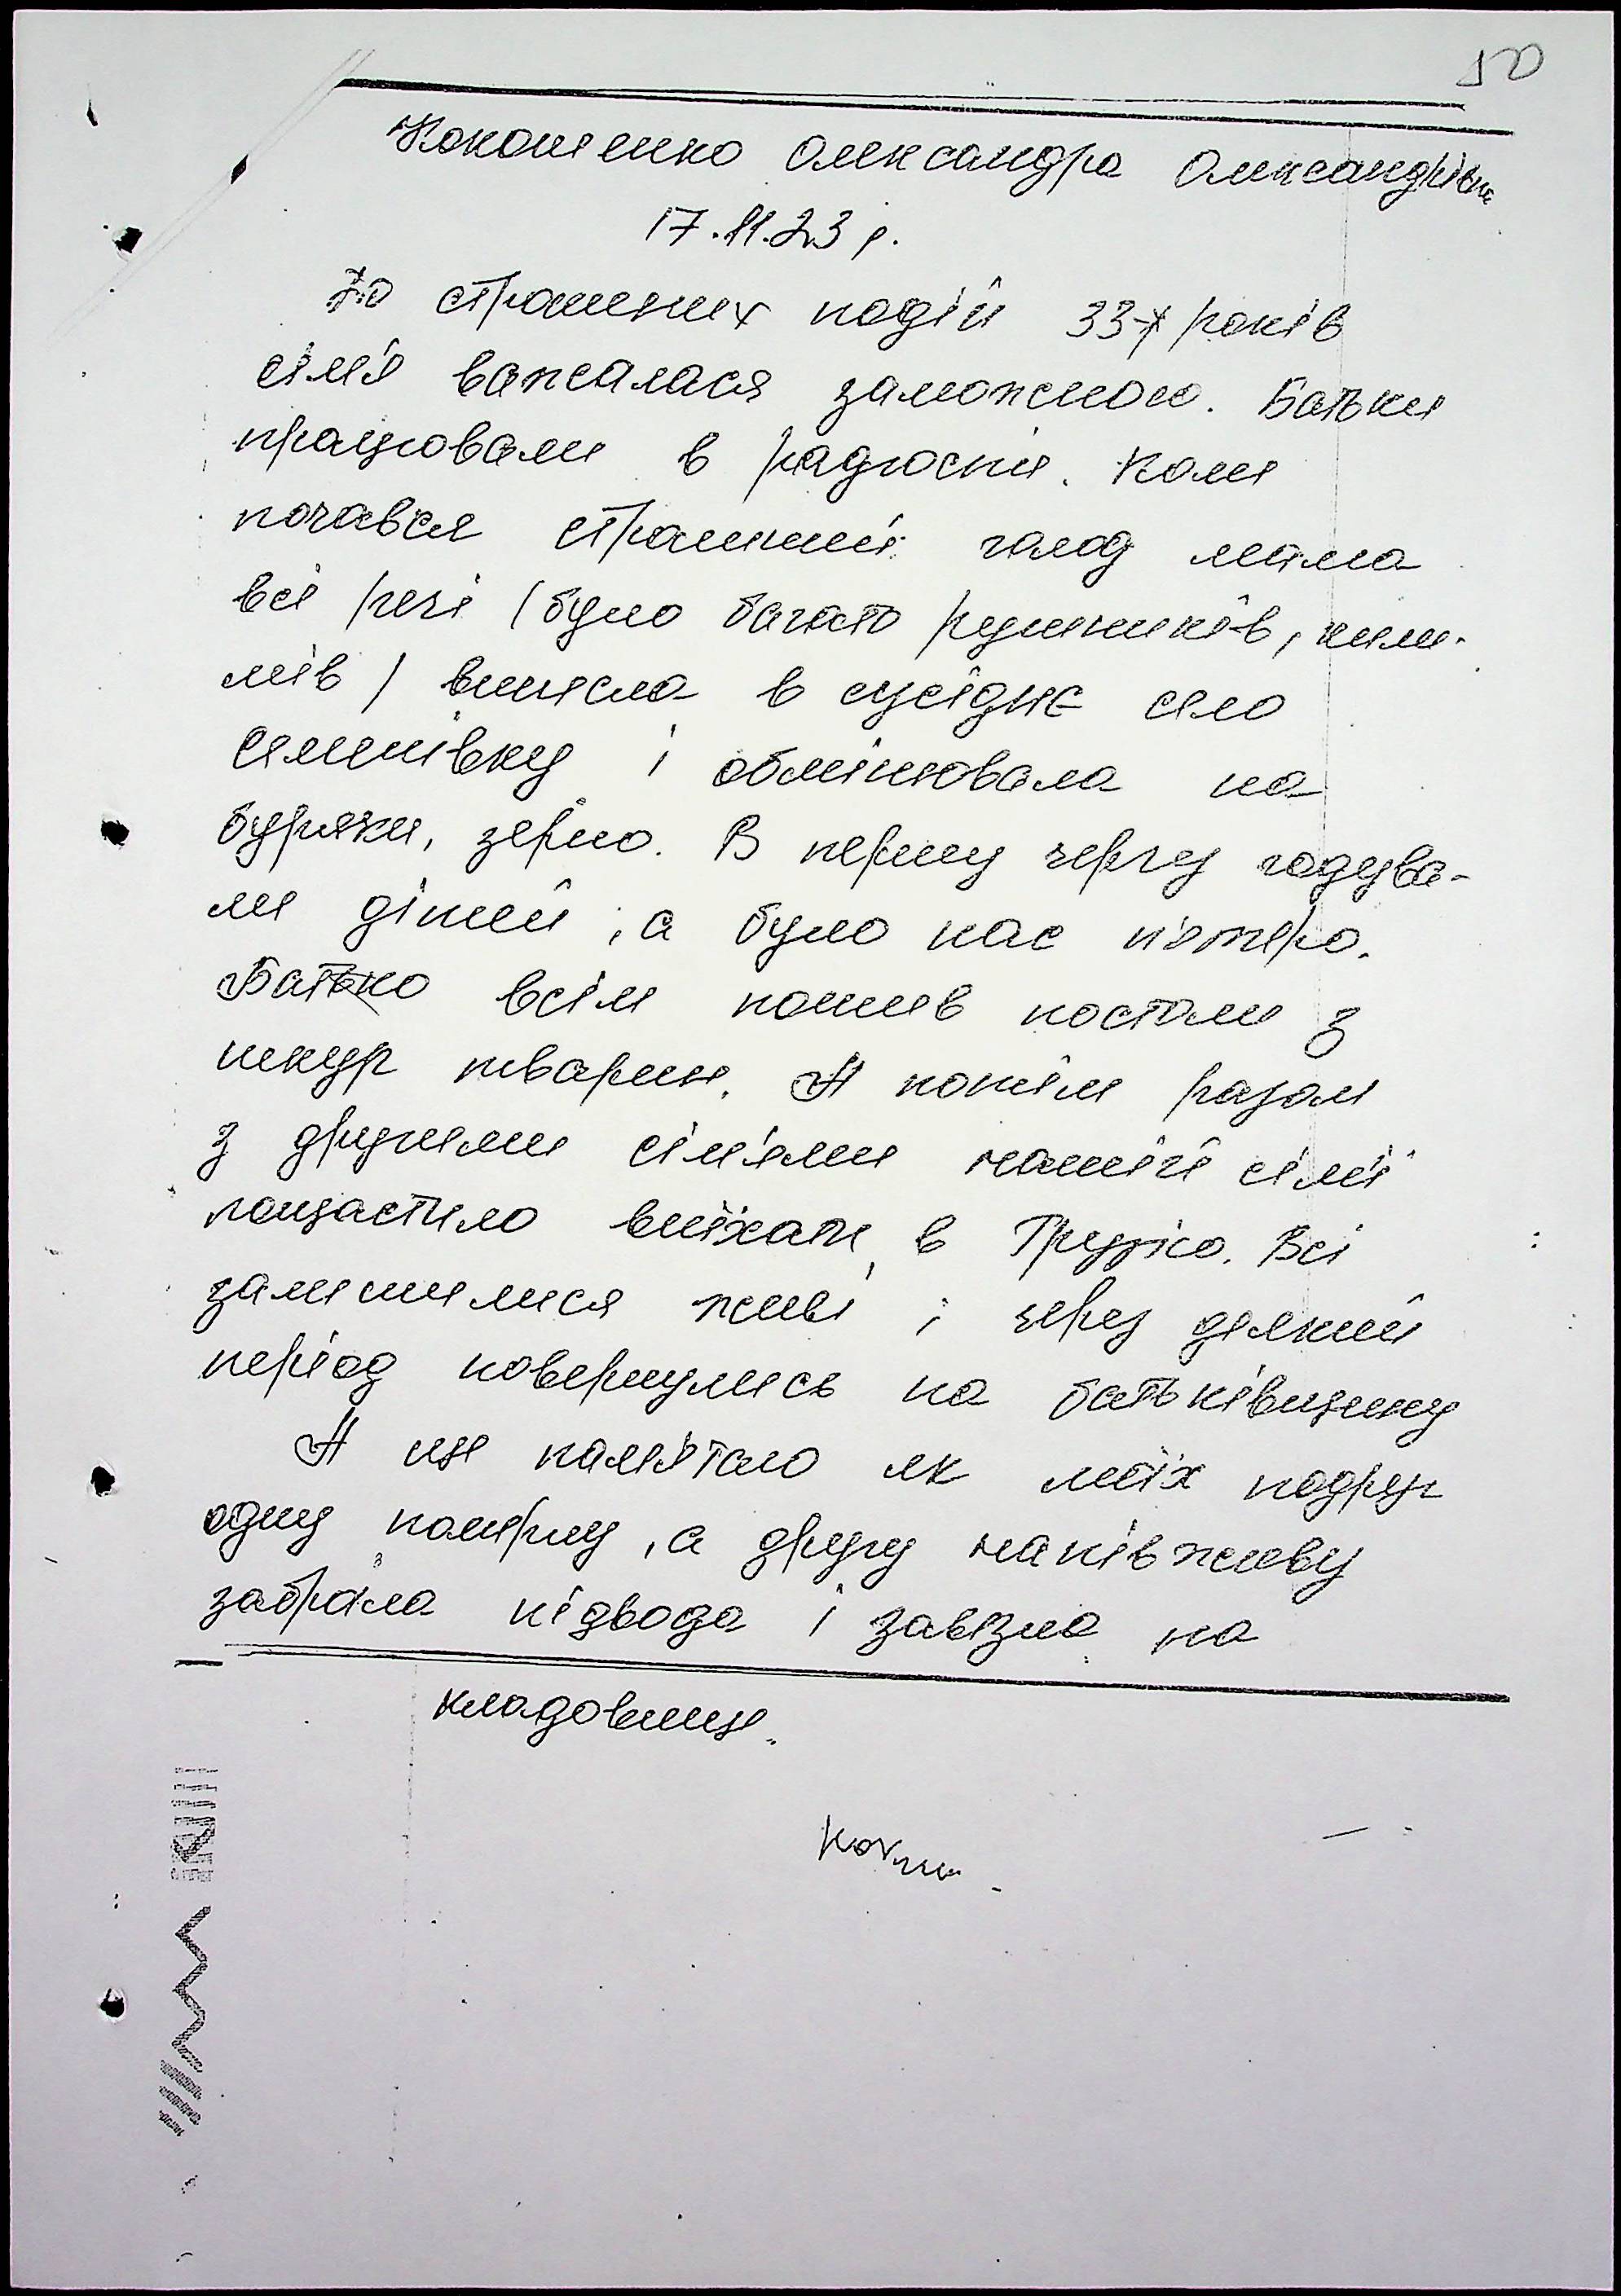 50
Кокошенко Олександра Олександрівна
17.11.23 р.
До страшних подій 33-х років
сім'я вважалася заможною. Батьки
працювали в радгоспі. Коли
почався страшний голод мама
всі речі (було багато рушників, кили-
мів) винесла в сусіднє село
Семенівку і обмінювала на
буряки, зерно. В першу чергу годува-
ли дітей, а було нас п'ятеро.
Батько всім пошив постоли з
шкур тварин. А потім разом
з другими сім'ями нашій сім'ї
пощастило виїхати в Грузію. Всі
залишилися живі і через деякий
період повернулись на батьківщину
А ще пам'ятаю як моїх подруг
одну померлу, а другу напівживу
забрала підвода і завезла на
кладовище.